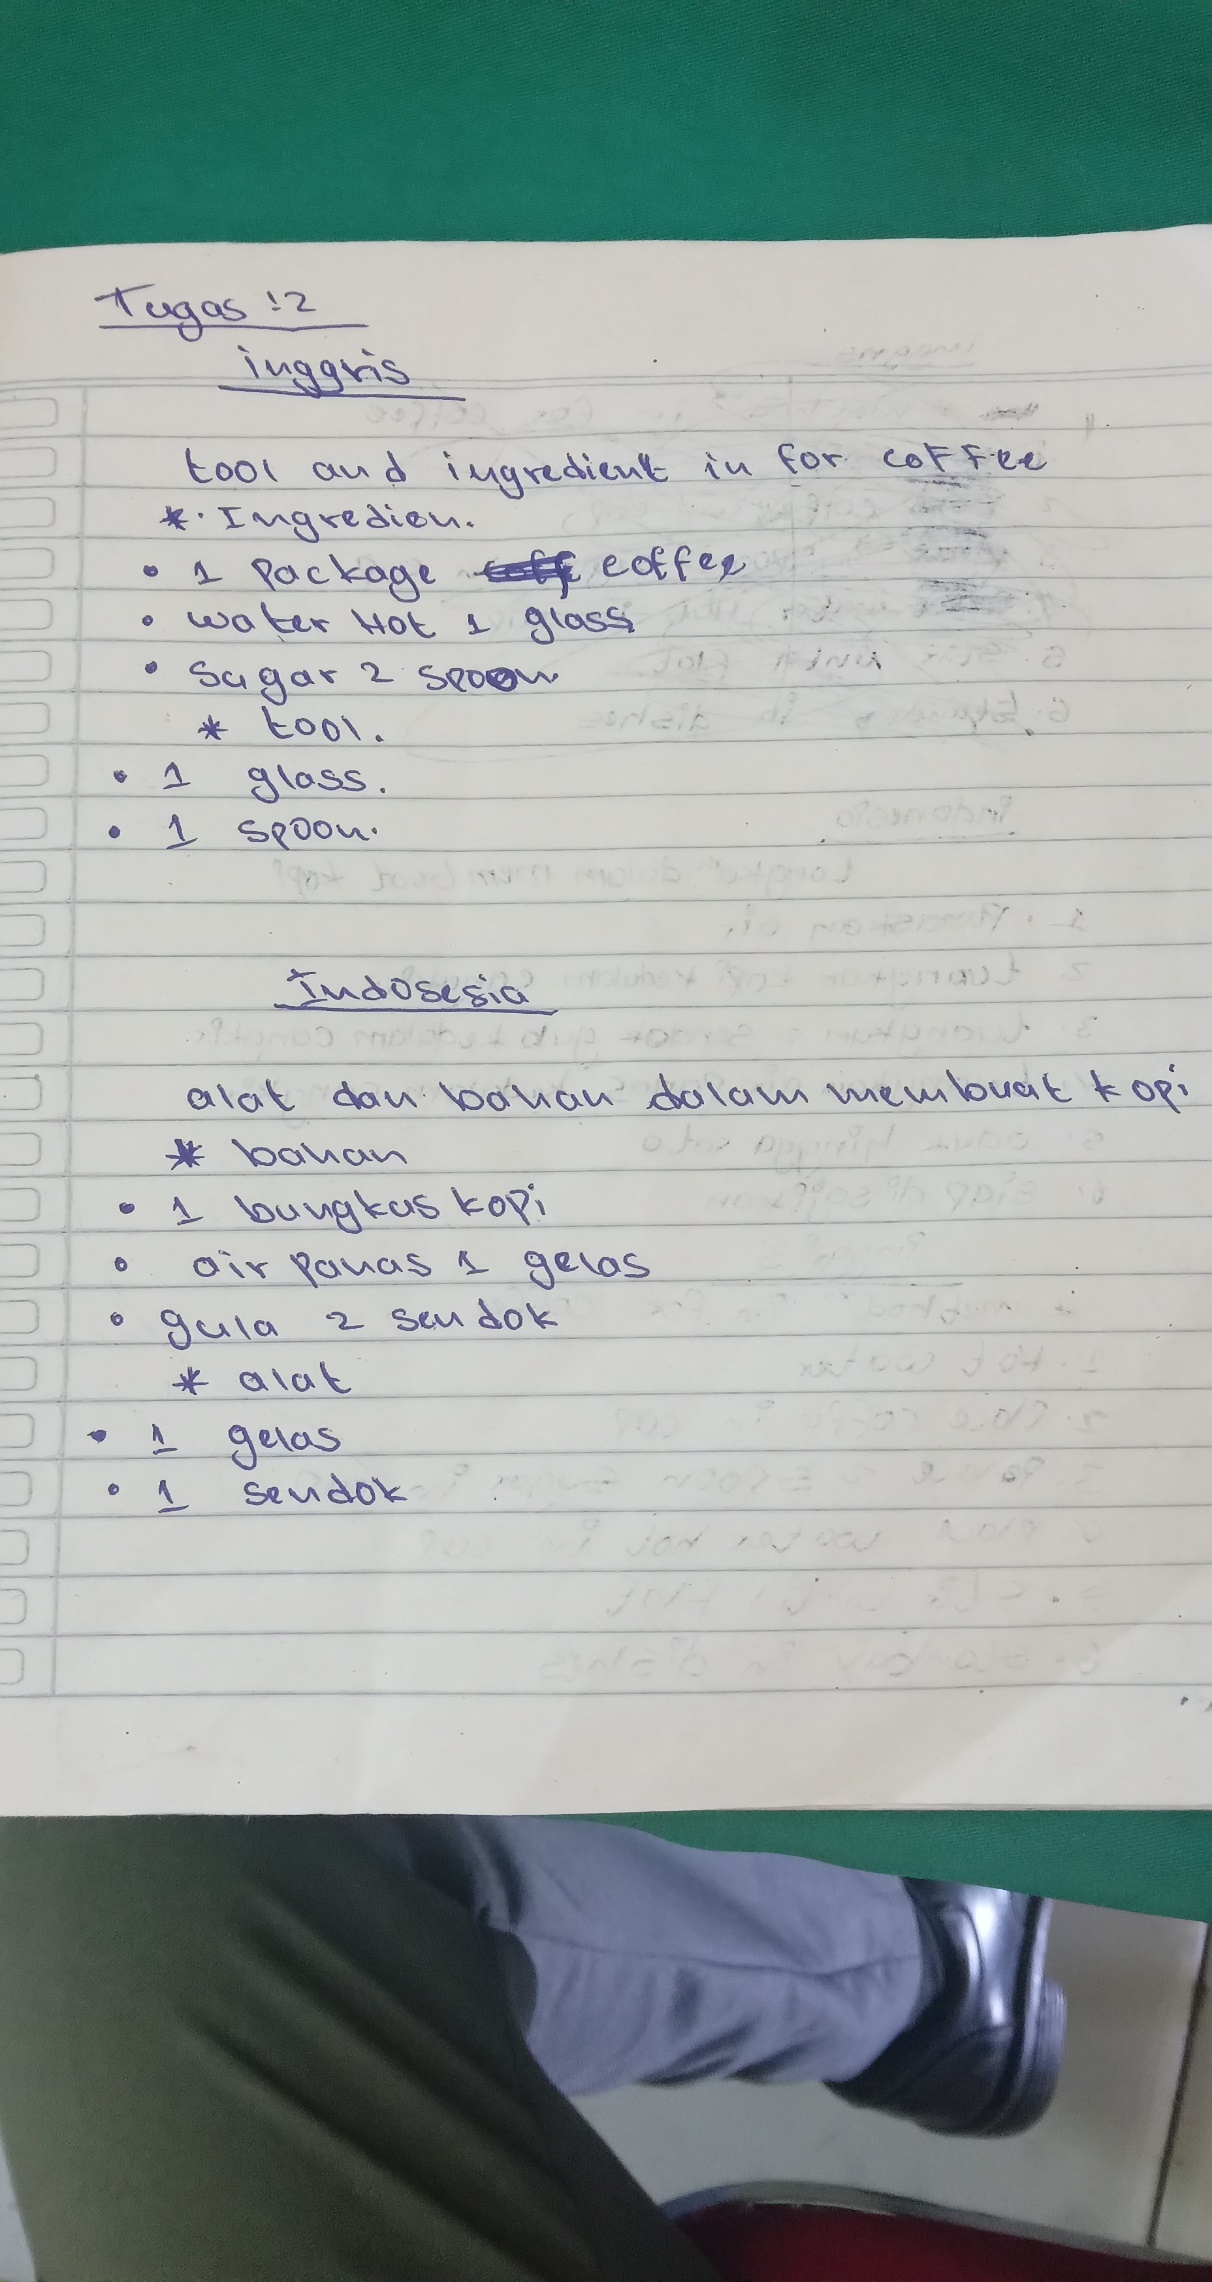 Tugas :2
inggris
tool and ingredient in for coffee
*. Ingredien.
• 1 Package coffee
• water Hot 1 glass
• Sugar 2 spoon
* tool.
• 1 glass.
• 1 spoon.
Indosesia
alat dan bahan dalam membuat kopi
* bahan
• 1 bungkus kopi
• air panas 1 gelas
• gula 2 sendok
* alat
• 1 gelas
• 1 sendok